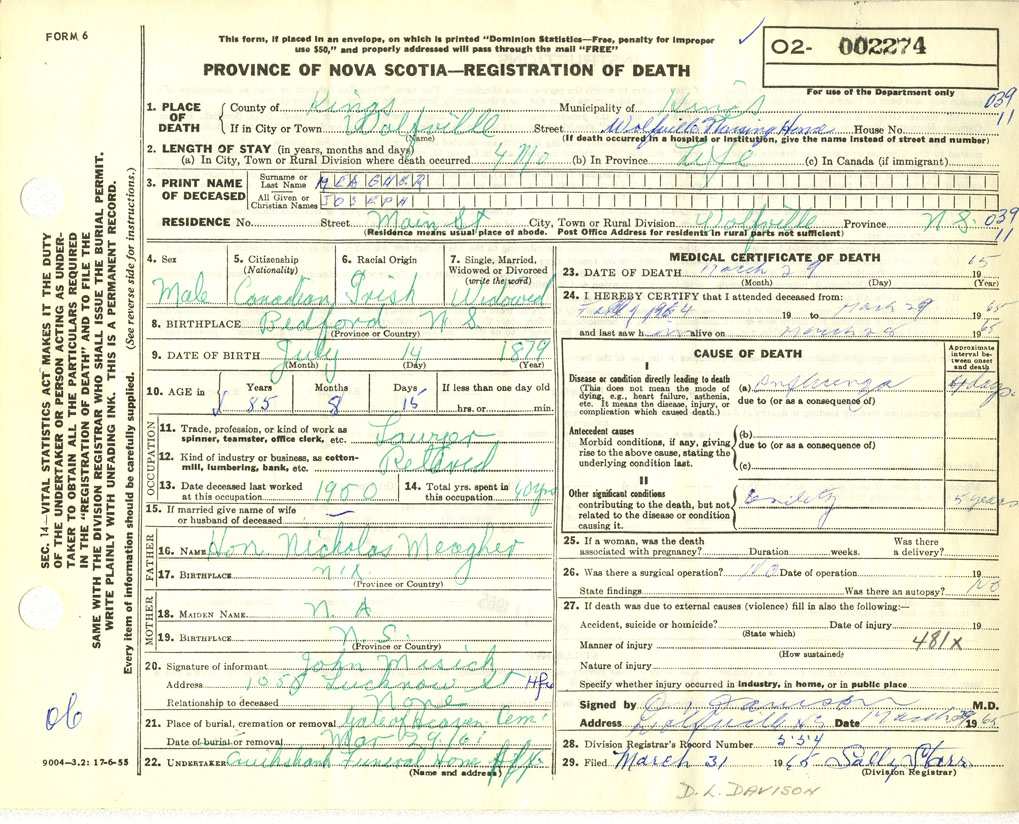 FORM 6
This form, if placed in an envelope, on which is printed "Dominion Statistics—Free, penalty for improper
use $50," and properly addressed will pass through the mail "FREE"
PROVINCE OF NOVA SCOTIA—REGISTRATION OF DEATH
02- 002274
For use of the Department only
039
11
1. PLACE OF DEATH
County of Kings Municipality of Kings
If in City or Town Wolfville Street Wolfville Nursing Home House No.
(Name) (If death occurred in a hospital or institution, give the name instead of street and number)
2. LENGTH OF STAY (in years, months and days)
(a) In City, Town or Rural Division where death occurred 4 Mo (b) In Province Life (c) In Canada (if immigrant)
3. PRINT NAME OF DECEASED
Surname or Last Name MEAGHER
All Given or Christian Names JOSEPH
RESIDENCE No. Street Main St City, Town or Rural Division Wolfville Province N S. 039
11
(Residence means usual place of abode. Post Office Address for residents in rural parts not sufficient)
4. Sex
Male
5. Citizenship
(Nationality)
Canadian
6. Racial Origin
Irish
7. Single, Married,
Widowed or Divorced
(write the word)
Widowed
8. BIRTHPLACE Bedford N S.
(Province or Country)
9. DATE OF BIRTH July 14 1879
(Month) (Day) (Year)
10. AGE in
Years Months Days If less than one day old
85 8 15 hrs. or min.
OCCUPATION
11. Trade, profession, or kind of work as
spinner, teamster, office clerk, etc. Lawyer
12. Kind of industry or business, as cotton-
mill, lumbering, bank, etc. Retired
13. Date deceased last worked
at this occupation 1950
14. Total yrs. spent in
this occupation 40 yrs
15. If married give name of wife
or husband of deceased —
FATHER
16. NAME Hon. Nicholas Meagher
17. BIRTHPLACE
(Province or Country)
MOTHER
18. MAIDEN NAME N. A
19. BIRTHPLACE N. S.
(Province or Country)
20. Signature of informant John Misick
Address 1058 Lucknow St Hfx
Relationship to deceased None
21. Place of burial, cremation or removal Gate of Heaven Cem
Date of burial or removal Mar 29/6
22. UNDERTAKER Cruikshank Funeral Home Hfx
(Name and address)
MEDICAL CERTIFICATE OF DEATH
23. DATE OF DEATH March 29 1965
(Month) (Day) (Year)
24. I HEREBY CERTIFY that I attended deceased from:
1964 19 to March 29 1965
and last saw h alive on March 28 1965
CAUSE OF DEATH
Approximate
interval be-
tween onset
and death
I
Disease or condition directly leading to death
(This does not mean the mode of
dying, e.g., heart failure, asthenia,
etc. It means the disease, injury, or
complication which caused death.)
(a) Influenza days.
due to (or as a consequence of)
Antecedent causes
Morbid conditions, if any, giving
rise to the above cause, stating the
underlying condition last.
(b)
due to (or as a consequence of)
(c)
II
Other significant conditions
contributing to the death, but not
related to the disease or condition
causing it.
Senility 5 years
25. If a woman, was the death
associated with pregnancy? Duration weeks. Was there
a delivery?
26. Was there a surgical operation? NO Date of operation 19
State findings Was there an autopsy? NO
27. If death was due to external causes (violence) fill in also the following:—
Accident, suicide or homicide? Date of injury 19
(State which)
Manner of injury 481X
(How sustained)
Nature of injury
Specify whether injury occurred in industry, in home, or in public place
Signed by Davison M.D.
Address Wolfville NS Date March 29 1965
28. Division Registrar's Record Number 554
29. Filed March 31 1965 Sally Starr
(Division Registrar)
D. L. DAVISON
SEC. 14—VITAL STATISTICS ACT MAKES IT THE DUTY
OF THE UNDERTAKER OR PERSON ACTING AS UNDER-
TAKER TO OBTAIN ALL THE PARTICULARS REQUIRED
IN THE "REGISTRATION OF DEATH" AND TO FILE THE
SAME WITH THE DIVISION REGISTRAR WHO SHALL ISSUE THE BURIAL PERMIT.
WRITE PLAINLY WITH UNFADING INK. THIS IS A PERMANENT RECORD.
Every item of information should be carefully supplied. (See reverse side for instructions.)
06
9004—3.2: 17-6-55